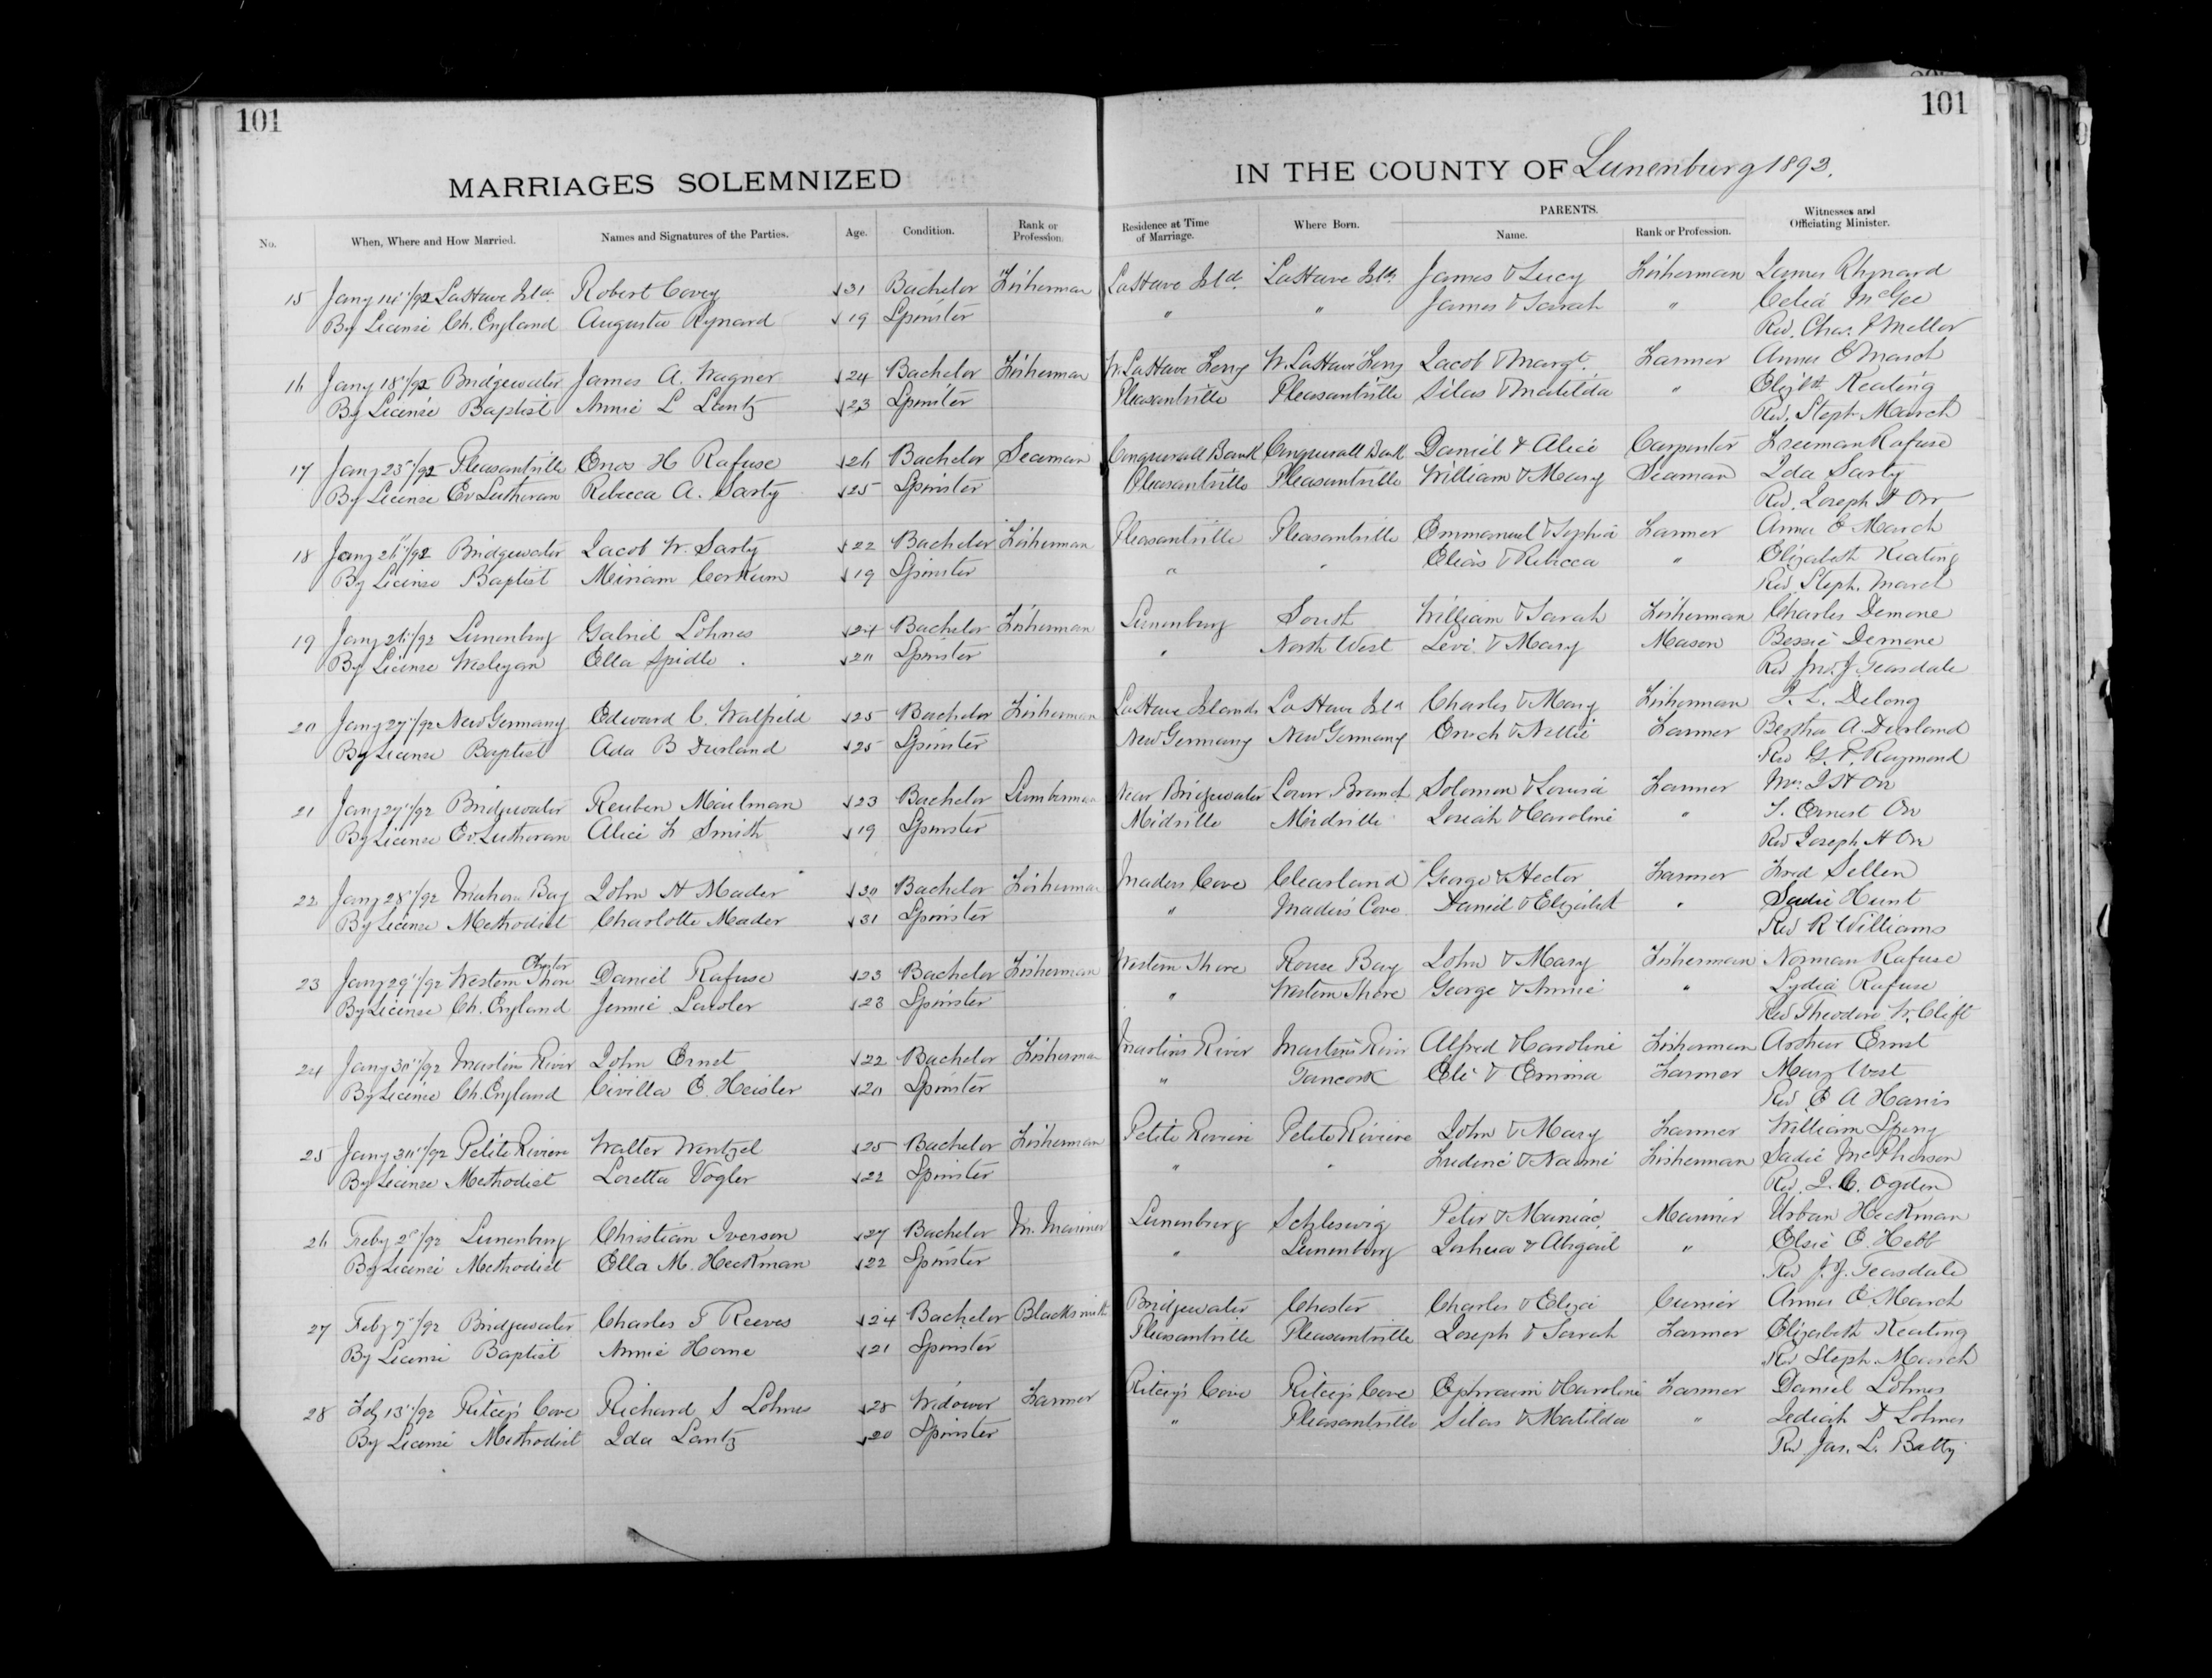 101
101
MARRIAGES SOLEMNIZED IN THE COUNTY OF Lunenburg 1892.
No. When, Where and How Married. Names and Signatures of the Parties. Age. Condition. Rank or Profession. Residence at Time of Marriage. Where Born. PARENTS. Name. Rank or Profession. Witnesses and Officiating Minister.
15 Jany 14"/92 LaHave Isld. Robert Covey 31 Bachelor Fisherman LaHave Isld. LaHave Isld. James & Lucy Fisherman James Rhynard
By License Ch. England Augusta Rynard 19 Spinster " " James & Sarah " Celia McGee
Rev. Chas. Mellor
16 Jany 18"/92 Bridgewater James A. Wagner 24 Bachelor Fisherman W. LaHave Ferry W. LaHave Ferry Jacob & Margt. Farmer Anna E March
By License Baptist Annie L Lantz 23 Spinster Pleasantville Pleasantville Silas & Matilda " Elizbt Keating
Rev. Steph March
17 Jany 23"/92 Pleasantville Enos H Rafuse 26 Bachelor Seaman Conquerall Bank Conquerall Bank Daniel & Alice Carpenter Freeman Rafuse
By License Ev Lutheran Rebecca A. Sarty 25 Spinster Pleasantville Pleasantville William & Mary Seaman Ida Sarty
Rev. Joseph H Orr
18 Jany 26"/92 Bridgewater Jacob W. Sarty 22 Bachelor Fisherman Pleasantville Pleasantville Emmanuel & Sophia Farmer Anna E March
By License Baptist Miriam Corkum 19 Spinster " " Elias & Rebecca " Elizabeth Keating
Rev. Steph. March
19 Jany 26"/92 Lunenburg Gabriel Lohnes 24 Bachelor Fisherman Lunenburg South William & Sarah Fisherman Charles Demone
By License Wesleyan Ella Spidle 20 Spinster " North West Levi & Mary Mason Bessie Demone
Rev Jno. J. Teasdale
20 Jany 27"/92 New Germany Edward C. Walfield 25 Bachelor Fisherman LaHave Islands LaHave Isld Charles & Mary Fisherman J. L. Delong
By License Baptist Ada B Durland 25 Spinster New Germany New Germany Enoch & Nellie Farmer Bertha A. Durland
Rev G. P. Raymond
21 Jany 27"/92 Bridgewater Reuben Mailman 23 Bachelor Lumberman Near Bridgewater Lower Branch Solomon & Louisa Farmer Mrs. J H Orr
By License Ev. Lutheran Alice F Smith 19 Spinster Midville Midville Josiah & Caroline " J. Ernest Orr
Rev Joseph H Orr
22 Jany 28"/92 Mahone Bay John H Mader 30 Bachelor Fisherman Maders Cove Clearland George & Hector Farmer Fred Sellen
By License Methodist Charlotte Mader 31 Spinster " Maders Cove Daniel & Elizabet " Sadie Hunt
Rev R Williams
23 Jany 29"/92 Western Shore Chester Daniel Rafuse 23 Bachelor Fisherman Western Shore Rouse Bay John & Mary Fisherman Norman Rafuse
By License Ch. England Jennie Lawler 23 Spinster " Western Shore George & Annie " Lydia Rafuse
Rev Theodore W. Clift
24 Jany 30"/92 Martins River John Ernst 22 Bachelor Fisherman Martins River Martins River Alfred & Caroline Fisherman Arthur Ernst
By License Ch. England Civilla E. Heisler 20 Spinster " Tancook Eli & Emma Farmer Mary West
Rev. E A Harris
25 Jany 30"/92 Petite Riviere Walter Wentzel 25 Bachelor Fisherman Petite Riviere Petite Riviere John & Mary Farmer William Sperry
By License Methodist Loretta Vogler 22 Spinster " " Frederic & Naomi Fisherman Sadie McPherson
Rev. J. C. Ogden
26 Feby 2"/92 Lunenburg Christian Iverson 27 Bachelor M. Mariner Lunenburg Schleswig Peter & Maniac Mariner Urban Heckman
By License Methodist Ella M. Heckman 22 Spinster " Lunenburg Joshua & Abigail " Elsie E. Hebb
Rev J. J. Teasdale
27 Feby 7"/92 Bridgewater Charles T Reeves 24 Bachelor Blacksmith Bridgewater Chester Charles & Eliza Currier Anna E. March
By License Baptist Annie Horne 21 Spinster Pleasantville Pleasantville Joseph & Sarah Farmer Elizabeth Keating
Rev Steph. March
28 Feby 13"/92 Ritceys Cove Richard S Lohnes 28 Widower Farmer Ritceys Cove Ritceys Cove Ephraim & Caroline Farmer Daniel Lohnes
By License Methodist Ida Lantz 20 Spinster " Pleasantville Silas & Matilda " Jediah D Lohnes
Rev Jas. L. Batty